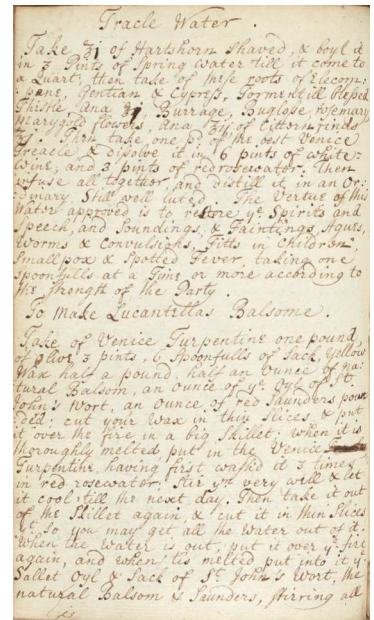 Tracle Water.
Take ℥j of Hartshorn shaved, & boyl it
in 3 Pints of Spring water till it come to
a Quart; then take of these roots of Elecom:
pane, Gentian & Cypress, Tormentill Blessed
Thistle ana ℥j, Burrage, Buglose, rosemary
marygold flowers, ana ℥ij of Cittorn rinds
℥j. Then take one pd. of the best Venice
Treacle & dissolve it in 6 pints of white-
wine, and 3 pints of redrosewater. Then
infuse all together and distill it in an Or:
dinary Still well luted. The Vertue of this
Water approved is to restore ye. Spirits and
Speech, and Soundings, & Faintings, Agues,
Worms & Convulsions, Fitts in Children
Smallpox & Spotted Fever, taking one
Spoonfulls at a Time or more according to
the strength of the Party.
To Make Lucantellas Balsome.
Take of Venice Turpentine one pound,
of olive 3 pints, 6 Spoonfulls of Sack, Yellow
Wax half a pound, half an Ounce of na:
tural Balsom, an ounce of ye. Oyl of St.
John's Wort, an Ounce of red Saunders poun
ded; cut your Wax in thin Slices & put
it over the fire in a big Skillet; when it is
thoroughly melted put in the Venice
Turpentine, having first washd it 3 times
in red rosewater; Stir ym very well & let
it cool till the next day. Then take it out
of the Skillet again, & cut it in thin Slices
yt. So you may get all the Water out of it:
When the Water is out, put it over ye. fire
again, and when tis melted put into it ye.
Sallet Oyl & Sack of St. John's Wort, the
natural Balsom & Saunders, stirring all